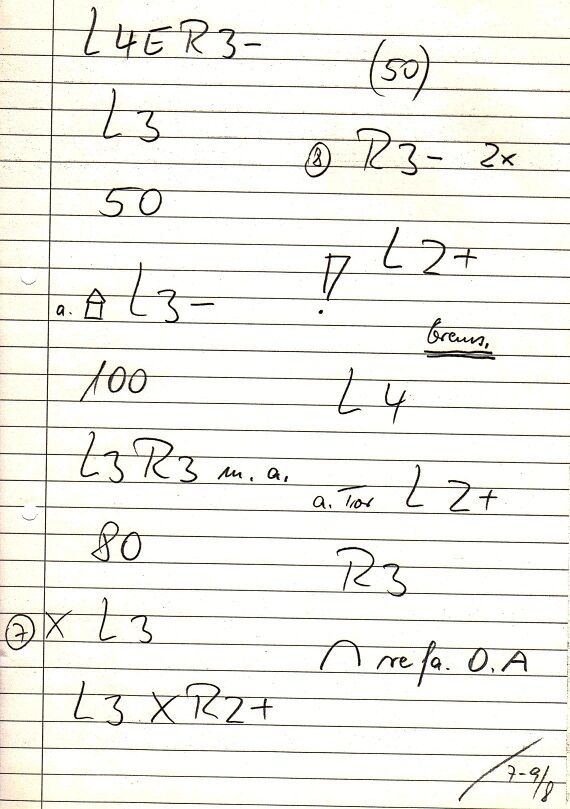 L4ER3-
L3
50
a. L3-
100
L3R3 m. a.
80
⑦ X L3
L3 X R2+
(50)
⑧ R3- 2x
! L2+
brems.
L4
a. Tor L2+
R3
O.A
7-9/8